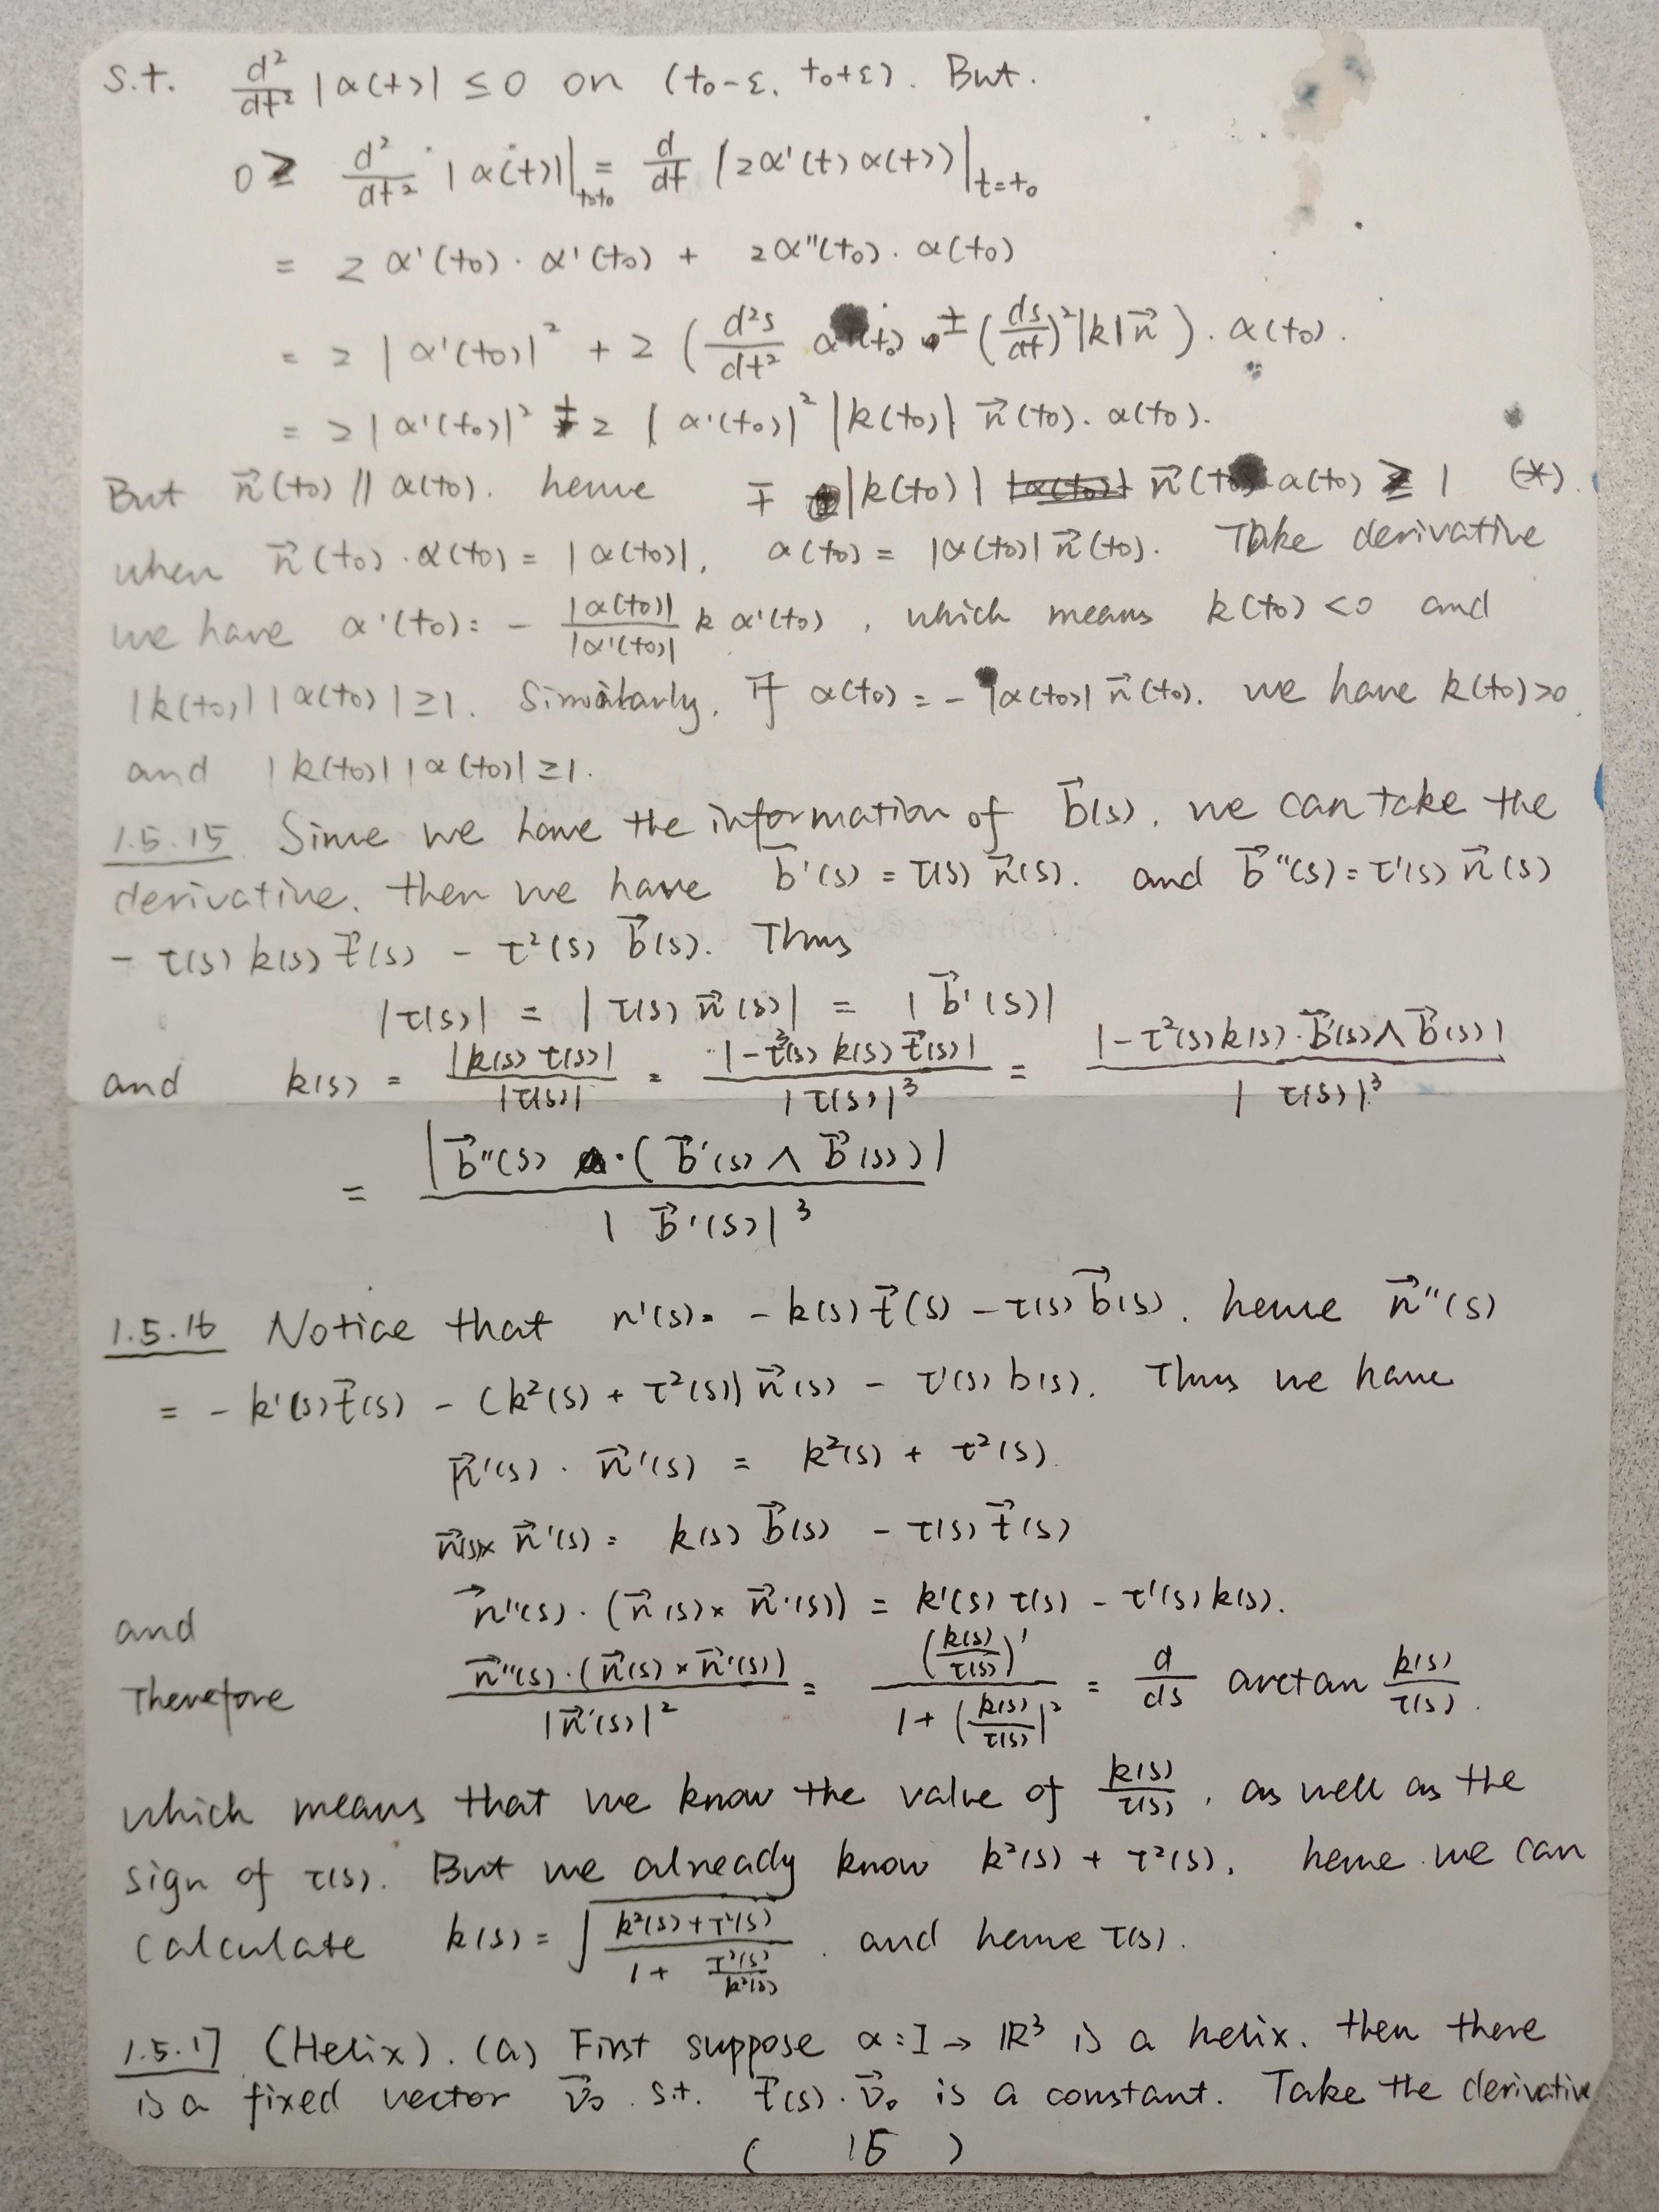 s.t. d²/dt² |α(t)| ≤ 0 on (t₀-ε, t₀+ε). But.
0 ≥ d²/dt² |α(t)||ₜ₌ₜ₀ = d/dt (2α'(t) α(t))|ₜ₌ₜ₀
= 2 α'(t₀) · α'(t₀) + 2α''(t₀) · α(t₀)
= 2 |α'(t₀)|² + 2 (d²s/dt² (t₀) ± (ds/dt)² |k| n⃗) · α(t₀).
= 2|α'(t₀)|² ± 2 |α'(t₀)|² |k(t₀)| n⃗(t₀) · α(t₀).
But n⃗(t₀) // α(t₀). hence ∓ |k(t₀)| n⃗(t₀) · α(t₀) ≥ 1 (*).
when n⃗(t₀) · α(t₀) = |α(t₀)|, α(t₀) = |α(t₀)| n⃗(t₀). Take derivative
we have α'(t₀) = - |α(t₀)|/|α'(t₀)| k α'(t₀), which means k(t₀) <0 and
|k(t₀)| |α(t₀)| ≥ 1. Similarly, if α(t₀) = - |α(t₀)| n⃗(t₀). we have k(t₀)>0.
and |k(t₀)| |α(t₀)| ≥ 1.
1.5.15 Since we have the information of b⃗(s), we can take the
derivative. then we have b⃗'(s) = τ(s) n⃗(s). and b⃗''(s) = τ'(s) n⃗(s)
- τ(s) k(s) t⃗(s) - τ²(s) b⃗(s). Thus
|τ(s)| = |τ(s) n⃗(s)| = |b⃗'(s)|
and k(s) = |k(s) τ(s)|/|τ(s)| = |-τ³(s) k(s) t⃗(s)|/|τ(s)|³ = |-τ²(s) k(s) · b⃗'(s) ∧ b⃗(s)|/|τ(s)|³
= |b⃗''(s) · (b⃗'(s) ∧ b⃗(s))|/|b⃗'(s)|³
1.5.16 Notice that n'(s) = - k(s) t⃗(s) - τ(s) b⃗(s). hence n⃗''(s)
= - k'(s) t⃗(s) - (k²(s) + τ²(s)) n⃗(s) - τ'(s) b(s). Thus we have
n⃗'(s) · n⃗'(s) = k²(s) + τ²(s).
n⃗(s) × n⃗'(s) = k(s) b⃗(s) - τ(s) t⃗(s)
and n⃗''(s) · (n⃗(s) × n⃗'(s)) = k'(s) τ(s) - τ'(s) k(s).
Therefore n⃗''(s) · (n⃗(s) × n⃗'(s))/|n⃗'(s)|² = (k(s)/τ(s))'/(1 + (k(s)/τ(s))²) = d/ds arctan k(s)/τ(s).
which means that we know the value of k(s)/τ(s), as well as the
sign of τ(s). But we already know k²(s) + τ²(s). hence we can
calculate k(s) = √((k²(s)+τ²(s))/(1 + τ²(s)/k²(s))). and hence τ(s).
1.5.17 (Helix). (a) First suppose α: I → ℝ³ is a helix. then there
is a fixed vector v⃗₀ s.t. t⃗(s) · v⃗₀ is a constant. Take the derivative
( 15 )